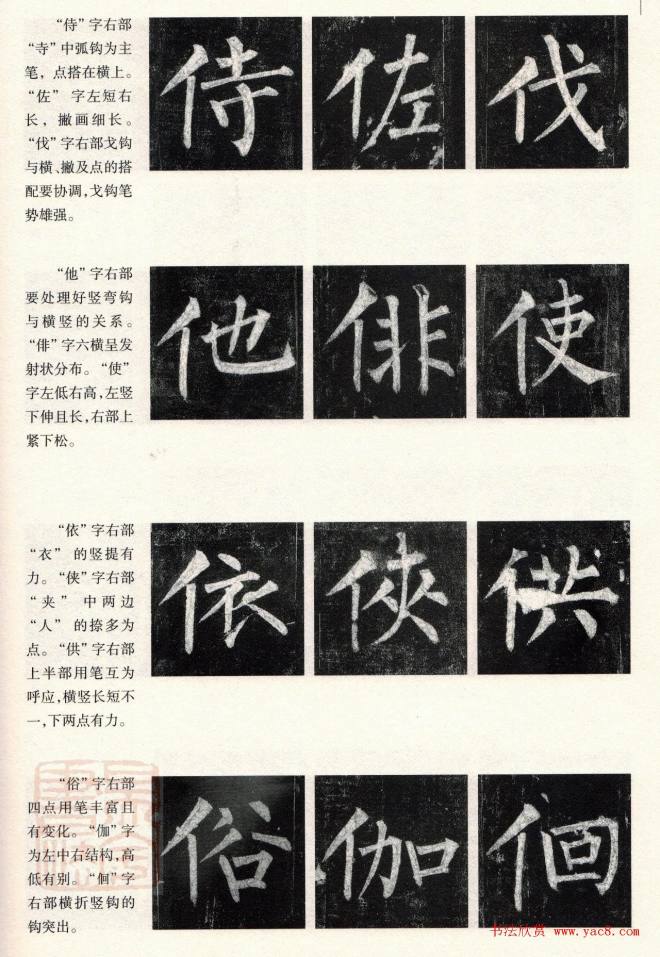 “侍”字右部
“寺”中弧钩为主
笔，点搭在横上。
“佐”字左短右
长，撇画细长。
“伐”字右部戈钩
与横、撇及点的搭
配要协调，戈钩笔
势雄强。
侍 佐 伐
“他”字右部
要处理好竖弯钩
与横竖的关系。
“俳”字六横呈发
射状分布。“使”
字左低右高，左竖
下伸且长，右部上
紧下松。
他 俳 使
“依”字右部
“衣”的竖提有
力。“侠”字右部
“夹”中两边
“人”的捺多为
点。“供”字右部
上半部用笔互为
呼应，横竖长短不
一，下两点有力。
依 俠 供
“俗”字右部
四点用笔丰富且
有变化。“伽”字
为左中右结构，高
低有别。“佪”字
右部横折竖钩的
钩突出。
俗 伽 佪
书法欣赏 www.yac8.com